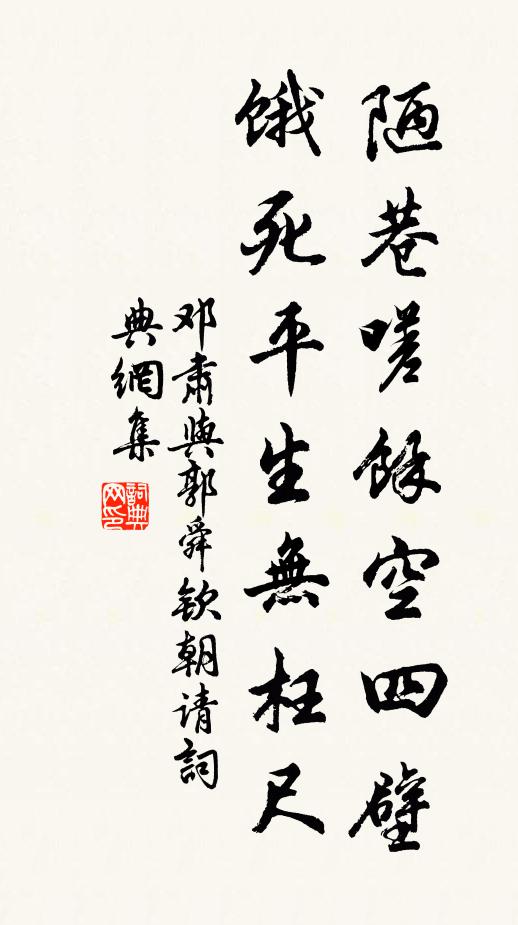 陋巷嗟餘空四壁
餓死平生無枉尺
邓肅與郭舜欽朝请詞
典網集
詞典网印